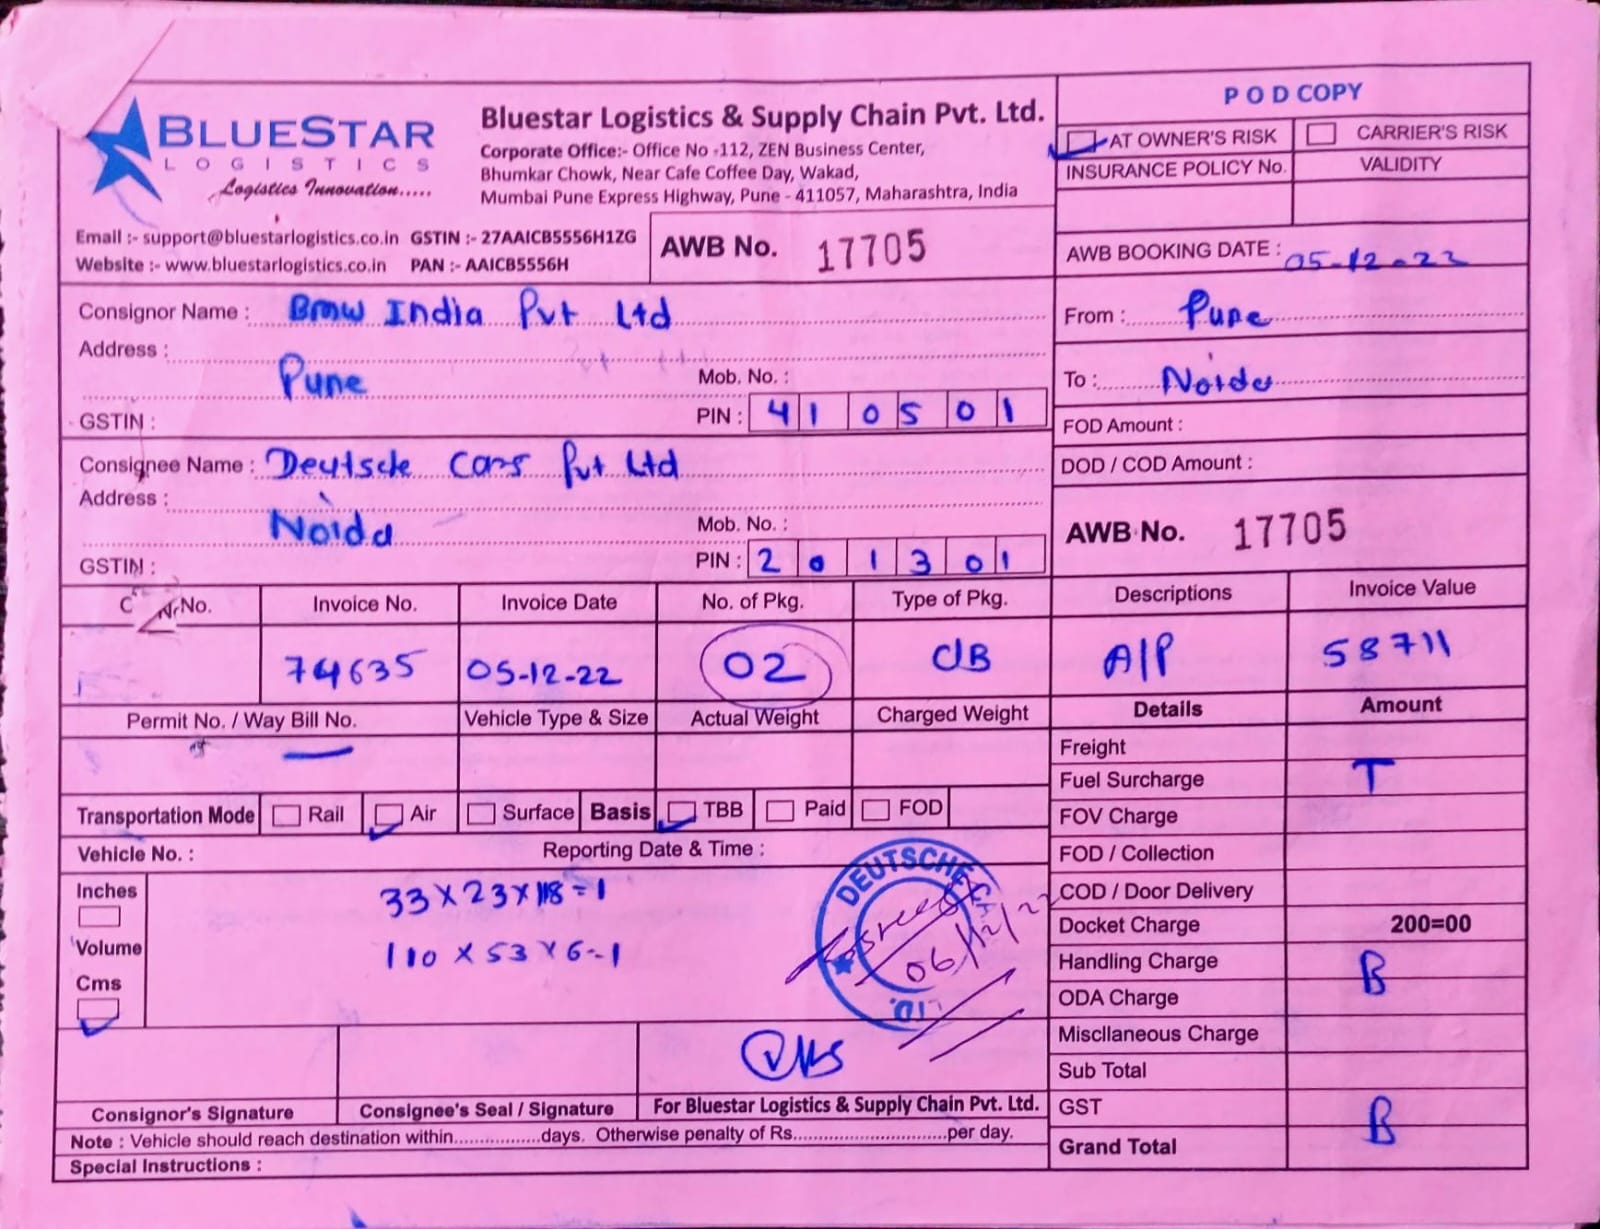 BLUESTAR
LOGISTICS
Logistics Innovation.....
Bluestar Logistics & Supply Chain Pvt. Ltd.
Corporate Office:- Office No -112, ZEN Business Center,
Bhumkar Chowk, Near Cafe Coffee Day, Wakad,
Mumbai Pune Express Highway, Pune - 411057, Maharashtra, India
Email :- support@bluestarlogistics.co.in GSTIN :- 27AAICB5556H1ZG
Website :- www.bluestarlogistics.co.in PAN :- AAICB5556H
AWB No. 17705
POD COPY
AT OWNER'S RISK CARRIER'S RISK
INSURANCE POLICY No. VALIDITY
AWB BOOKING DATE : 05-12-22
Consignor Name : Bmw India Pvt Ltd
Address :
Pune
Mob. No. :
GSTIN :
PIN : 410501
From : Pune
To : Noida
FOD Amount :
DOD / COD Amount :
Consignee Name : Deutsche Cars Pvt Ltd
Address :
Noida
Mob. No. :
GSTIN :
PIN : 201301
AWB No. 17705
No. Invoice No. Invoice Date No. of Pkg. Type of Pkg. Descriptions Invoice Value
74635 05-12-22 02 CB A/P 58711
Permit No. / Way Bill No. Vehicle Type & Size Actual Weight Charged Weight Details Amount
Freight
Fuel Surcharge T
Transportation Mode Rail Air Surface Basis TBB Paid FOD
FOV Charge
Vehicle No. : Reporting Date & Time :
FOD / Collection
Inches
33 X 23 X 118 = 1
COD / Door Delivery
Docket Charge 200=00
Volume
110 X 53 X 6 - 1
Handling Charge B
Cms
ODA Charge
DEUTSCHE CA
LTD.
06/12/22
Miscllaneous Charge
Sub Total
Consignor's Signature Consignee's Seal / Signature For Bluestar Logistics & Supply Chain Pvt. Ltd.
GST B
Note : Vehicle should reach destination within.................days. Otherwise penalty of Rs..............................per day.
Grand Total
Special Instructions :